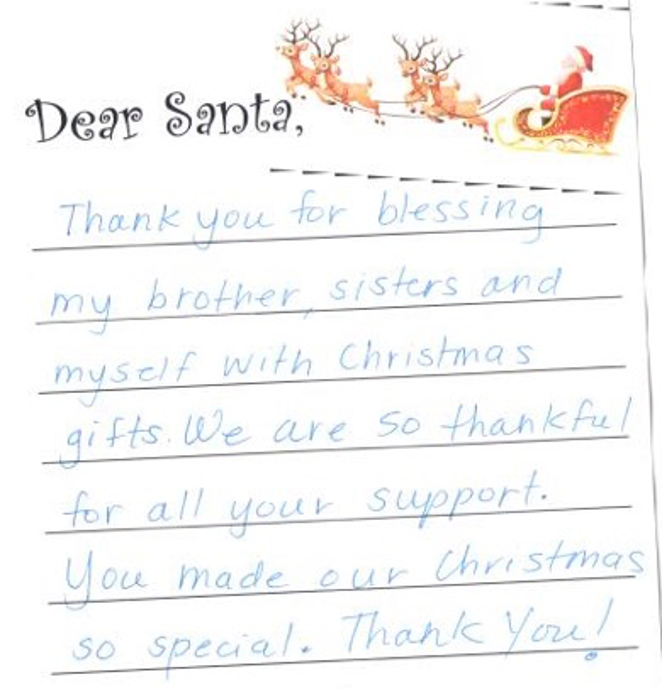 Dear Santa,
Thank you for blessing
my brother, sisters and
myself with Christmas
gifts. We are so thankful
for all your support.
You made our Christmas
so special. Thank You!